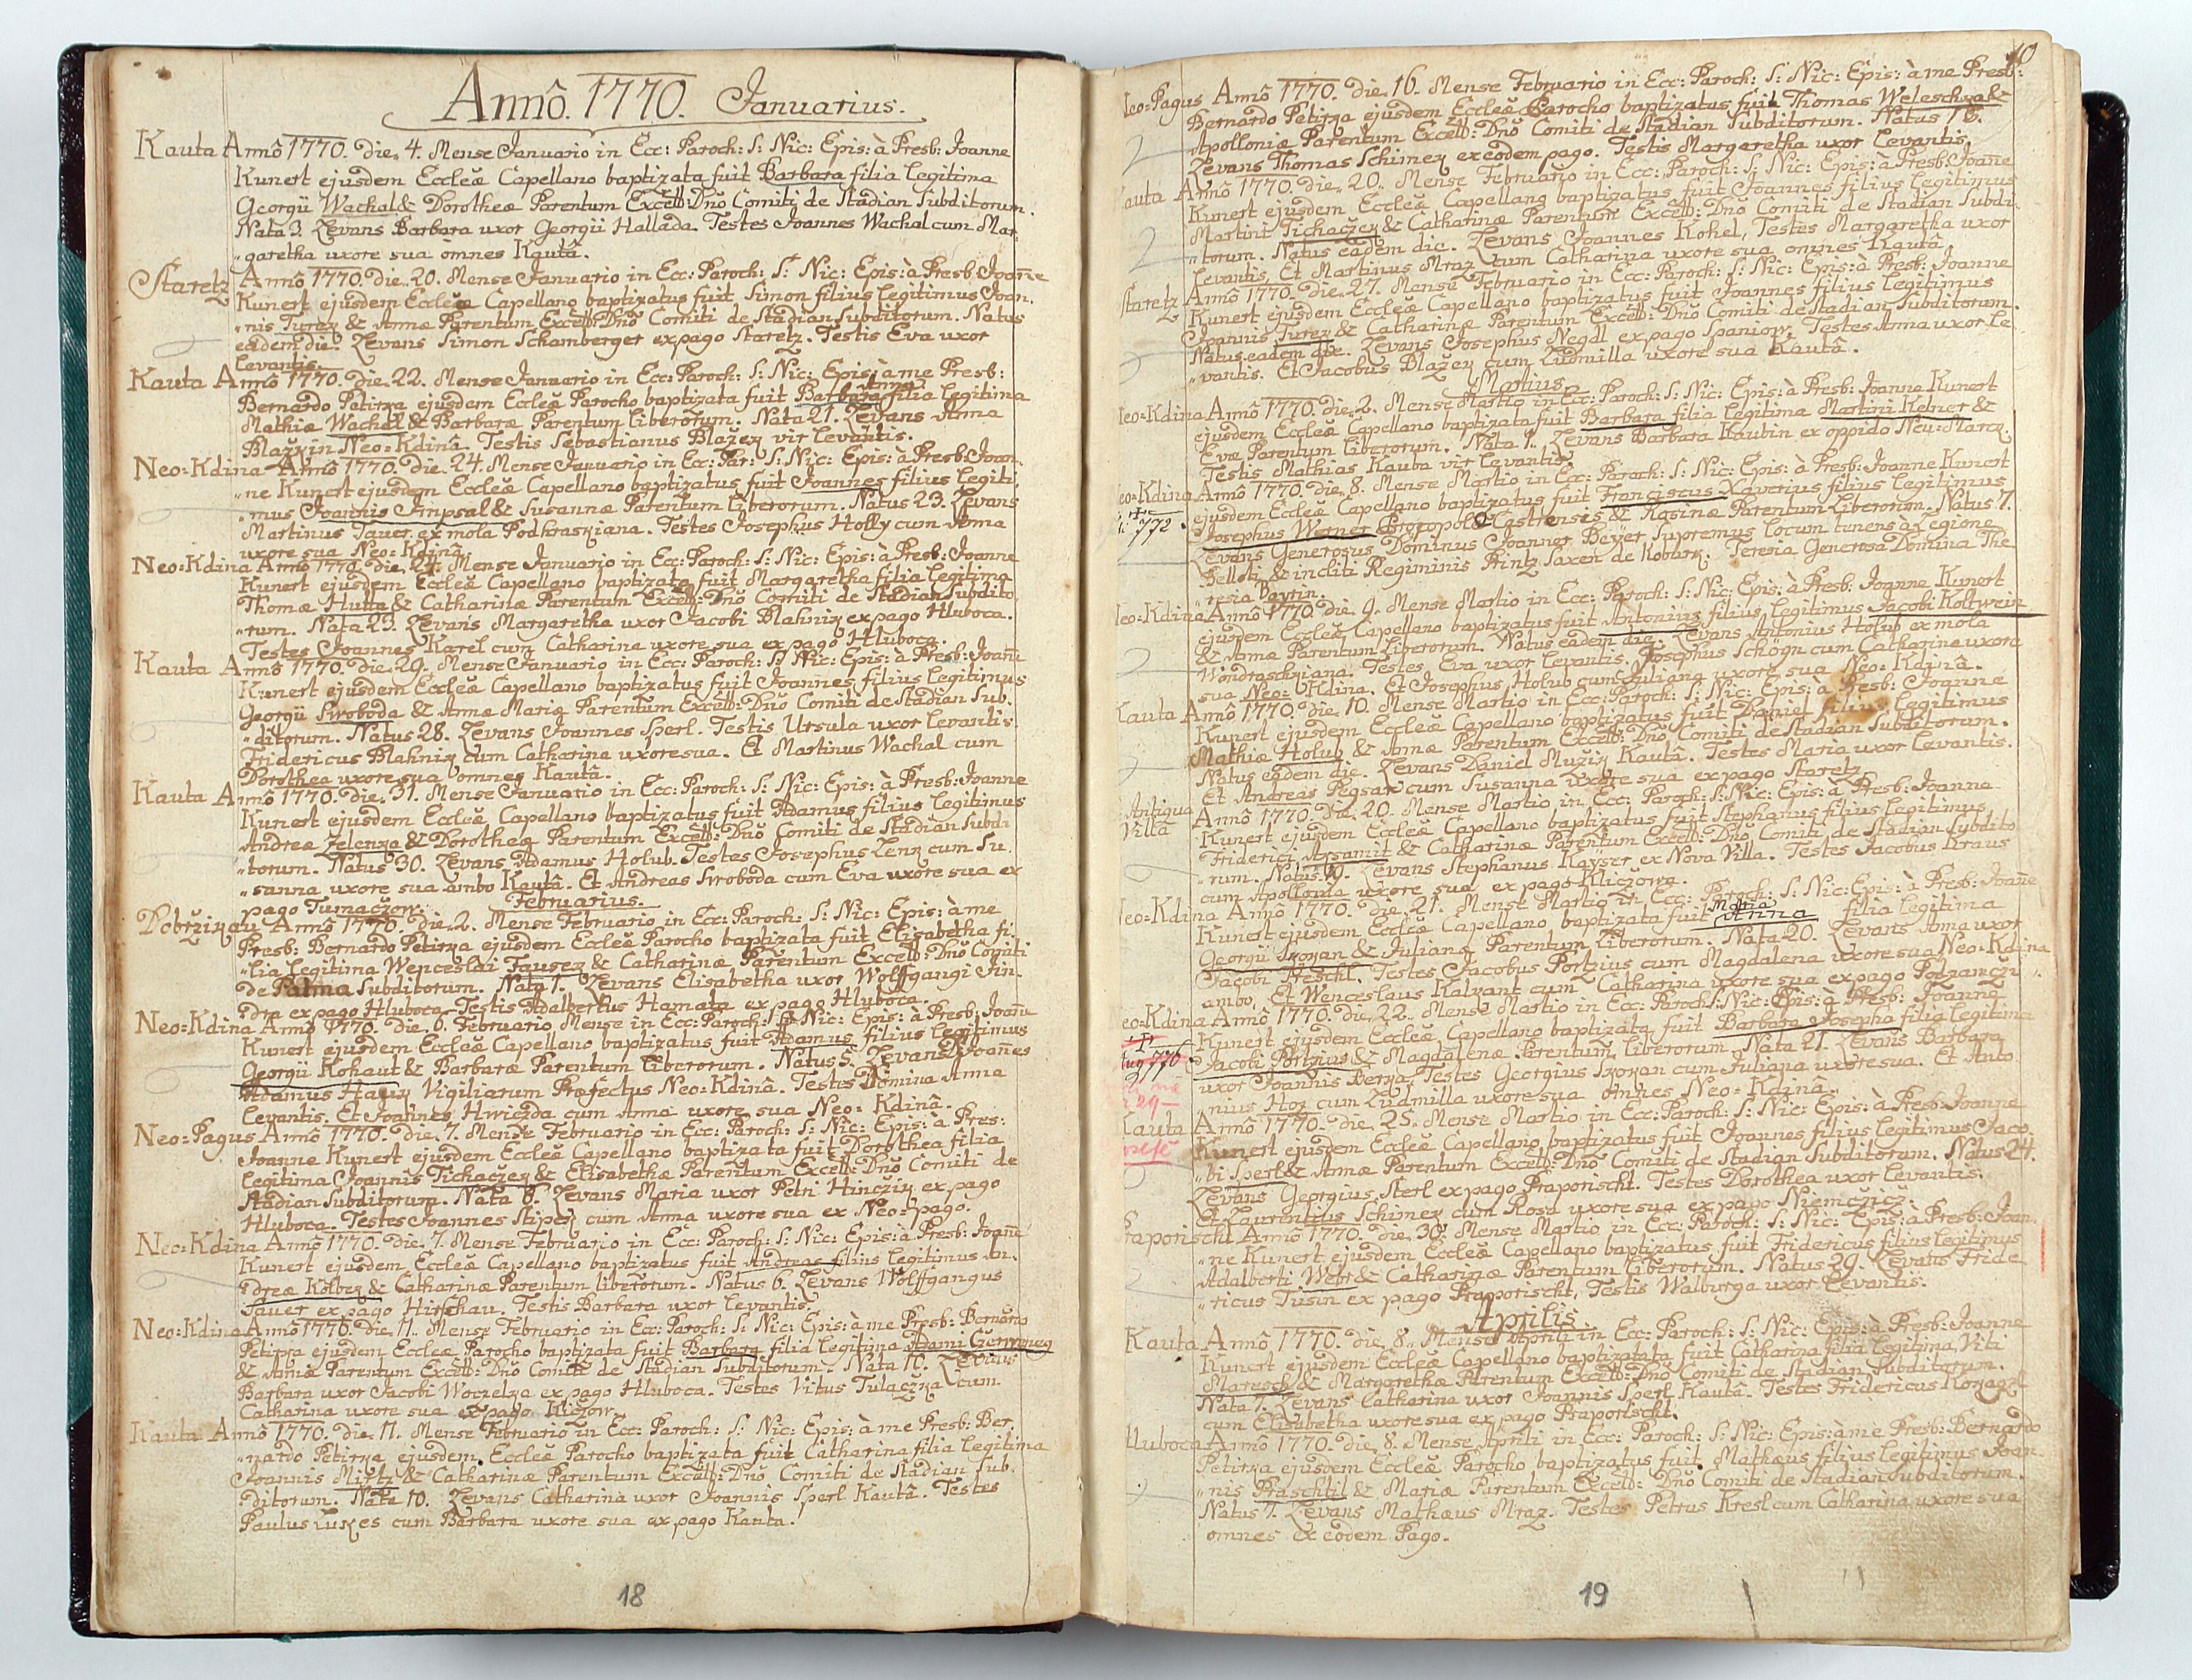 Annô. 1770. Januarius.
Kauta Annô 1770. die 4. Mense Januario in Ecc: Paroch: S: Nic: Epis: à Presb: Joanne
Kunert ejusdem Eccleæ Capellano baptizata fuit Barbara filia legitima
Georgii Wachal & Dorotheæ Parentum Excell: Dnô Comiti de Stadian Subditorum.
Nata 3. Levans Barbara uxor Georgii Hallada. Testes Joannes Wachal cum Mar-
„garetha uxore sua omnes Kautâ.
Staretz Annô 1770. die 20. Mense Januario in Ecc: Paroch: S: Nic: Epis: à Presb: Joañe
Kunert ejusdem Eccleæ Capellano baptizatus fuit Simon filius legitimus Joan-
„nis Turez & Annæ Parentum Excell: Dnô Comiti de Stadian Subditorum. Natus
eâdem die. Levans Simon Schamberger ex pago Staretz. Testis Eva uxor
Levantis.
Kauta Annô 1770. die 22. Mense Januario in Ecc: Paroch: S: Nic: Epis: à me Presb:
Anna
Bernardo Petirka ejusdem Eccleæ Parocho baptizata fuit Barbara filia legitima
Mathiæ Wachal & Barbaræ Parentum liberorum. Nata 21. Levans Anna
Blažkin Neo=Kdinâ. Testis Sebastianus Blažek vir levantis.
Neo=Kdina Annô 1770. die 24. Mense Januario in Ecc: Par: S: Nic: Epis: à Presb: Joan-
„ne Kunert ejusdem Eccleæ Capellano baptizatus fuit Joannes filius legiti-
„mus Joannis Impsal & Susannæ Parentum liberorum. Natus 23. Levans
Martinus Tauer ex mola Podhraskiana. Testes Josephus Holly cum Anna
uxore sua Neo=Kdinâ.
Neo=Kdina Annô 1770. die 24. Mense Januario in Ecc: Paroch: S: Nic: Epis: à Presb: Joanne
Kunert ejusdem Eccleæ Capellano baptizata fuit Margaretha filia legitima
Thomæ Hutta & Catharinæ Parentum Excell: Dnô Comiti de Stadian Subdito-
„rum. Nata 23. Levans Margaretha uxor Jacobi Blahnik ex pago Hluboca.
Testes Joannes Karel cum Catharina uxore sua ex pago Hluboca.
Kauta Annô 1770. die 29. Mense Januario in Ecc: Paroch: S: Nic: Epis: à Presb: Joañe
Kunert ejusdem Eccleæ Capellano baptizatus fuit Joannes filius legitimus
Georgii Swoboda & Annæ Mariæ Parentum Excell: Dnô Comiti de Stadian Sub-
„ditorum. Natus 28. Levans Joannes Sperl. Testis Ursula uxor levantis.
Fridericus Blahnik cum Catharina uxore sua. Et Martinus Wachal cum
Dorothea uxore sua omnes Kautâ.
Kauta Annô 1770. die 31. Mense Januario in Ecc: Paroch: S: Nic: Epis: à Presb: Joanne
Kunert ejusdem Eccleæ Capellano baptizatus fuit Adamus filius legitimus
Andreæ Zelenka & Dorotheæ Parentum Excell: Dnô Comiti de Stadian Subdi-
„torum. Natus 30. Levans Adamus Holub. Testes Josephus Lenk cum Su-
„sanna uxore sua ambo Kautâ. Et Andreas Swoboda cum Eva uxore sua ex
pago Tumaczow.
Februarius.
Dobržikau Annô 1770. die 2. Mense Februario in Ecc: Paroch: S: Nic: Epis: à me
Presb: Bernardo Petirka ejusdem Eccleæ Parocho baptizata fuit Elisabetha fi-
„lia legitima Wenceslai Tauser & Catharinæ Parentum Excell: Dnô Comiti
de Palma Subditorum. Nata 1. Levans Elisabetha uxor Wolffgangi Jin-
dra ex pago Hluboca. Testis Adalbertus Hamata ex pago Hluboca.
Neo=Kdina Annô 1770. die 6. Februario Mense in Ecc: Paroch: S: Nic: Epis: à Presb: Joañe
Kunert ejusdem Eccleæ Capellano baptizatus fuit Adamus filius legitimus
Georgii Kohaut & Barbaræ Parentum liberorum. Natus 5. Levans Joannes
Adamus Hayek Vigiliarum Præfectus Neo=Kdinâ. Testes Domina Anna
Levantis. Et Joannes Hwiezda cum Anna uxore sua Neo=Kdinâ.
Neo=Pagus Annô 1770. die 7. Mense Februario in Ecc: Paroch: S: Nic: Epis: à Pres:
Joanne Kunert ejusdem Eccleæ Capellano baptizata fuit Dorothea filia
legitima Joannis Tichaczek & Elisabethæ Parentum Excell: Dnô Comiti de
Stadian Subditorum. Nata 6. Levans Maria uxor Petri Hinczik ex pago
Hluboca. Testes Joannes Stipek cum Anna uxore sua ex Neo=pago.
Neo=Kdina Annô 1770. die 7. Mense Februario in Ecc: Paroch: S: Nic: Epis: à Presb: Joañe
Kunert ejusdem Eccleæ Capellano baptizatus fuit Andreas filius legitimus An-
„dreæ Kolbek & Catharinæ Parentum liberorum. Natus 6. Levans Wolffgangus
Tauer ex pago Hirschau. Testis Barbara uxor levantis.
Neo=Kdina Annô 1770. die 11. Mense Februario in Ecc: Paroch: S: Nic: Epis: à me Presb: Bernardo
Petirka ejusdem Eccleæ Parocho baptizata fuit Barbara filia legitima Adami
& Annæ Parentum Excell: Dnô Comiti de Stadian Subditorum. Nata 10. Levans
Barbara uxor Jacobi Woczelka ex pago Hluboca. Testes Vitus Tulaczka cum
Catharina uxore sua ex pago Kliczow.
Kauta Annô 1770. die 11. Mense Februario in Ecc: Paroch: S: Nic: Epis: à me Presb: Ber-
„nardo Petirka ejusdem Eccleæ Parocho baptizata fuit Catharina filia legitima
Joannis Mirtz & Catharinæ Parentum Excell: Dnô Comiti de Stadian Sub-
ditorum. Nata 10. Levans Catharina uxor Joannis Sperl Kautâ. Testes
Paulus Lukes cum Barbara uxore sua ex pago Kauta.
18
10
Neo=Pagus Annô 1770. die 16. Mense Februario in Ecc: Paroch: S: Nic: Epis: à me Presb:
Bernardo Petirka ejusdem Eccleæ Parocho baptizatus fuit Thomas Weleschka &
Apolloniæ Parentum Excell: Dnô Comiti de Stadian Subditorum. Natus 16.
Levans Thomas Schimek ex eodem pago. Testis Margaretha uxor levantis.
Kauta Annô 1770. die 20. Mense Februario in Ecc: Paroch: S: Nic: Epis: à Presb: Joañe
Kunert ejusdem Eccleæ Capellano baptizatus fuit Joannes filius legitimus
Martini Tichaczek & Catharinæ Parentum Excell: Dnô Comiti de Stadian Subdi-
„torum. Natus eadem die. Levans Joannes Kohel, Testes Margaretha uxor
Levantis, Et Martinus Mraz cum Catharina uxore sua omnes Kautâ.
Staretz Annô 1770. die 27. Mense Februario in Ecc: Paroch: S: Nic: Epis: à Presb: Joanne
Kunert ejusdem Eccleæ Capellano baptizatus fuit Joannes filius legitimus
Joannis Turek & Catharinæ Parentum Excell: Dnô Comiti de Stadian Subditorum.
Natus eadem die. Levans Josephus Negdl ex pago Spaniow. Testes Anna uxor Le-
„vantis. Et Jacobus Blažek cum Ludmilla uxore sua Kautâ.
Martius.
Neo=Kdina Annô 1770. die 2. Mense Martio in Ecc: Paroch: S: Nic: Epis: à Presb: Joanne Kunert
ejusdem Eccleæ Capellano baptizata fuit Barbara filia legitima Martini Kelner &
Evæ Parentum liberorum. Nata 1. Levans Barbara Kautin ex oppido Neu=Marck.
Testis Mathias Kauta vir levantis.
Neo=Kdina Annô 1770. die 8. Mense Martio in Ecc: Paroch: S: Nic: Epis: à Presb: Joanne Kunert
ejusdem Eccleæ Capellano baptizatus fuit Franciscus Xaverius filius legitimus
772.
Josephus Werner Propopola Castrensis & Rosinæ Parentum liberorum. Natus 7.
Levans Generosus Dominus Joannes Beyer Supremus locum tenens à Legione
Selloti & incliti Regiminis Printz Saxen de Koburg. Teresia Generosa Domina The-
resia Payrin.
Neo=Kdina Annô 1770. die 9. Mense Martio in Ecc: Paroch: S: Nic: Epis: à Presb: Joanne Kunert
ejusdem Eccleæ Capellano baptizatus fuit Antonius filius legitimus Jacobi Koltwein
& Annæ Parentum liberorum. Natus eadem die. Levans Antonius Holub ex mola
Wondraschkiana. Testes Eva uxor levantis. Josephus Schögn cum Catharina uxore
sua Neo=Kdina. Et Josephus Holub cum Juliana uxore sua Neo=Kdinâ.
Kauta Annô 1770. die 10. Mense Martio in Ecc: Paroch: S: Nic: Epis: à Presb: Joanne
Kunert ejusdem Eccleæ Capellano baptizatus fuit Daniel filius legitimus
Mathiæ Holub & Annæ Parentum Excell: Dnô Comiti de Stadian Subditorum.
Natus eadem die. Levans Daniel Mužik Kautâ. Testes Maria uxor levantis.
Et Andreas Pegsar cum Susanna uxore sua ex pago Staretz.
Antiqua Villa Annô 1770. die 20. Mense Martio in Ecc: Paroch: S: Nic: Epis: à Presb: Joanne
Kunert ejusdem Eccleæ Capellano baptizatus fuit Stephanus filius legitimus
Friderici Arsamit & Catharinæ Parentum Excell: Dnô Comiti de Stadian Subdito-
„rum. Natus 19. Levans Stephanus Kayser ex Nova Villa. Testes Jacobus Kraus
cum Apollonia uxore sua ex pago Kliczowa.
Neo=Kdina Annô 1770. die 21. Mense Martio in Ecc: Paroch: S: Nic: Epis: à Presb: Joañe
Maria
Kunert ejusdem Eccleæ Capellano baptizata fuit Anna filia legitima
Georgii Skokan & Julianæ Parentum liberorum. Nata 20. Levans Anna uxor
Jacobi Preschl. Testes Jacobus Portzius cum Magdalena uxore sua Neo=Kdina
ambo. Et Wenceslaus Kalkant cum Catharina uxore sua ex pago Podzamczi.
Neo=Kdina Annô 1770. die 22. Mense Martio in Ecc: Paroch: S: Nic: Epis: à Presb: Joanne
Kunert ejusdem Eccleæ Capellano baptizata fuit Barbara Josepha filia legitima
776
Jacobi Portzius & Magdalenæ Parentum liberorum. Nata 21. Levans Barbara
uxor Joannis Berka. Testes Georgius Skokan cum Juliana uxore sua. Et Anto-
29
nius Hok cum Ludmilla uxore sua omnes Neo=Kdinâ.
Kauta Annô 1770. die 25. Mense Martio in Ecc: Paroch: S: Nic: Epis: à Presb: Joanne
Kunert ejusdem Eccleæ Capellano baptizatus fuit Joannes filius legitimus Jaco-
„bi Sperl & Annæ Parentum Excell: Dnô Comiti de Stadian Subditorum. Natus 24.
Levans Georgius Sterl ex pago Praporischt. Testes Dorothea uxor levantis.
Et Laurentius Schimek cum Rosa uxore sua ex pago Niemczicz.
Praporischt Annô 1770. die 30. Mense Martio in Ecc: Paroch: S: Nic: Epis: à Presb: Joan-
„ne Kunert ejusdem Eccleæ Capellano baptizatus fuit Fridericus filius legitimus
Adalberti Webr & Catharinæ Parentum liberorum. Natus 29. Levans Fride-
„ricus Tusin ex pago Praporischt, Testis Walburga uxor levantis.
Aprilis
Kauta Annô 1770. die 8. Mense Aprili in Ecc: Paroch: S: Nic: Epis: à Presb: Joanne
Kunert ejusdem Eccleæ Capellano baptizatata fuit Catharina filia legitima Viti
Maresch & Margarethæ Parentum Excell: Dnô Comiti de Stadian Subditorum.
Nata 7. Levans Catharina uxor Joannis Sperl Kautâ. Testes Fridericus
cum Elisabetha uxore sua ex pago Praporischt.
Hluboca Annô 1770. die 8. Mense Aprili in Ecc: Paroch: S: Nic: Epis: à me Presb: Bernardo
Petirka ejusdem Eccleæ Parocho baptizatus fuit Mathæus filius legitimus Joan-
„nis Praschtil & Mariæ Parentum Excell: Dnô Comiti de Stadian Subditorum.
Natus 7. Levans Mathæus Mraz. Testes Petrus Kresl cum Catharina uxore sua
omnes ex eodem Pago.
19